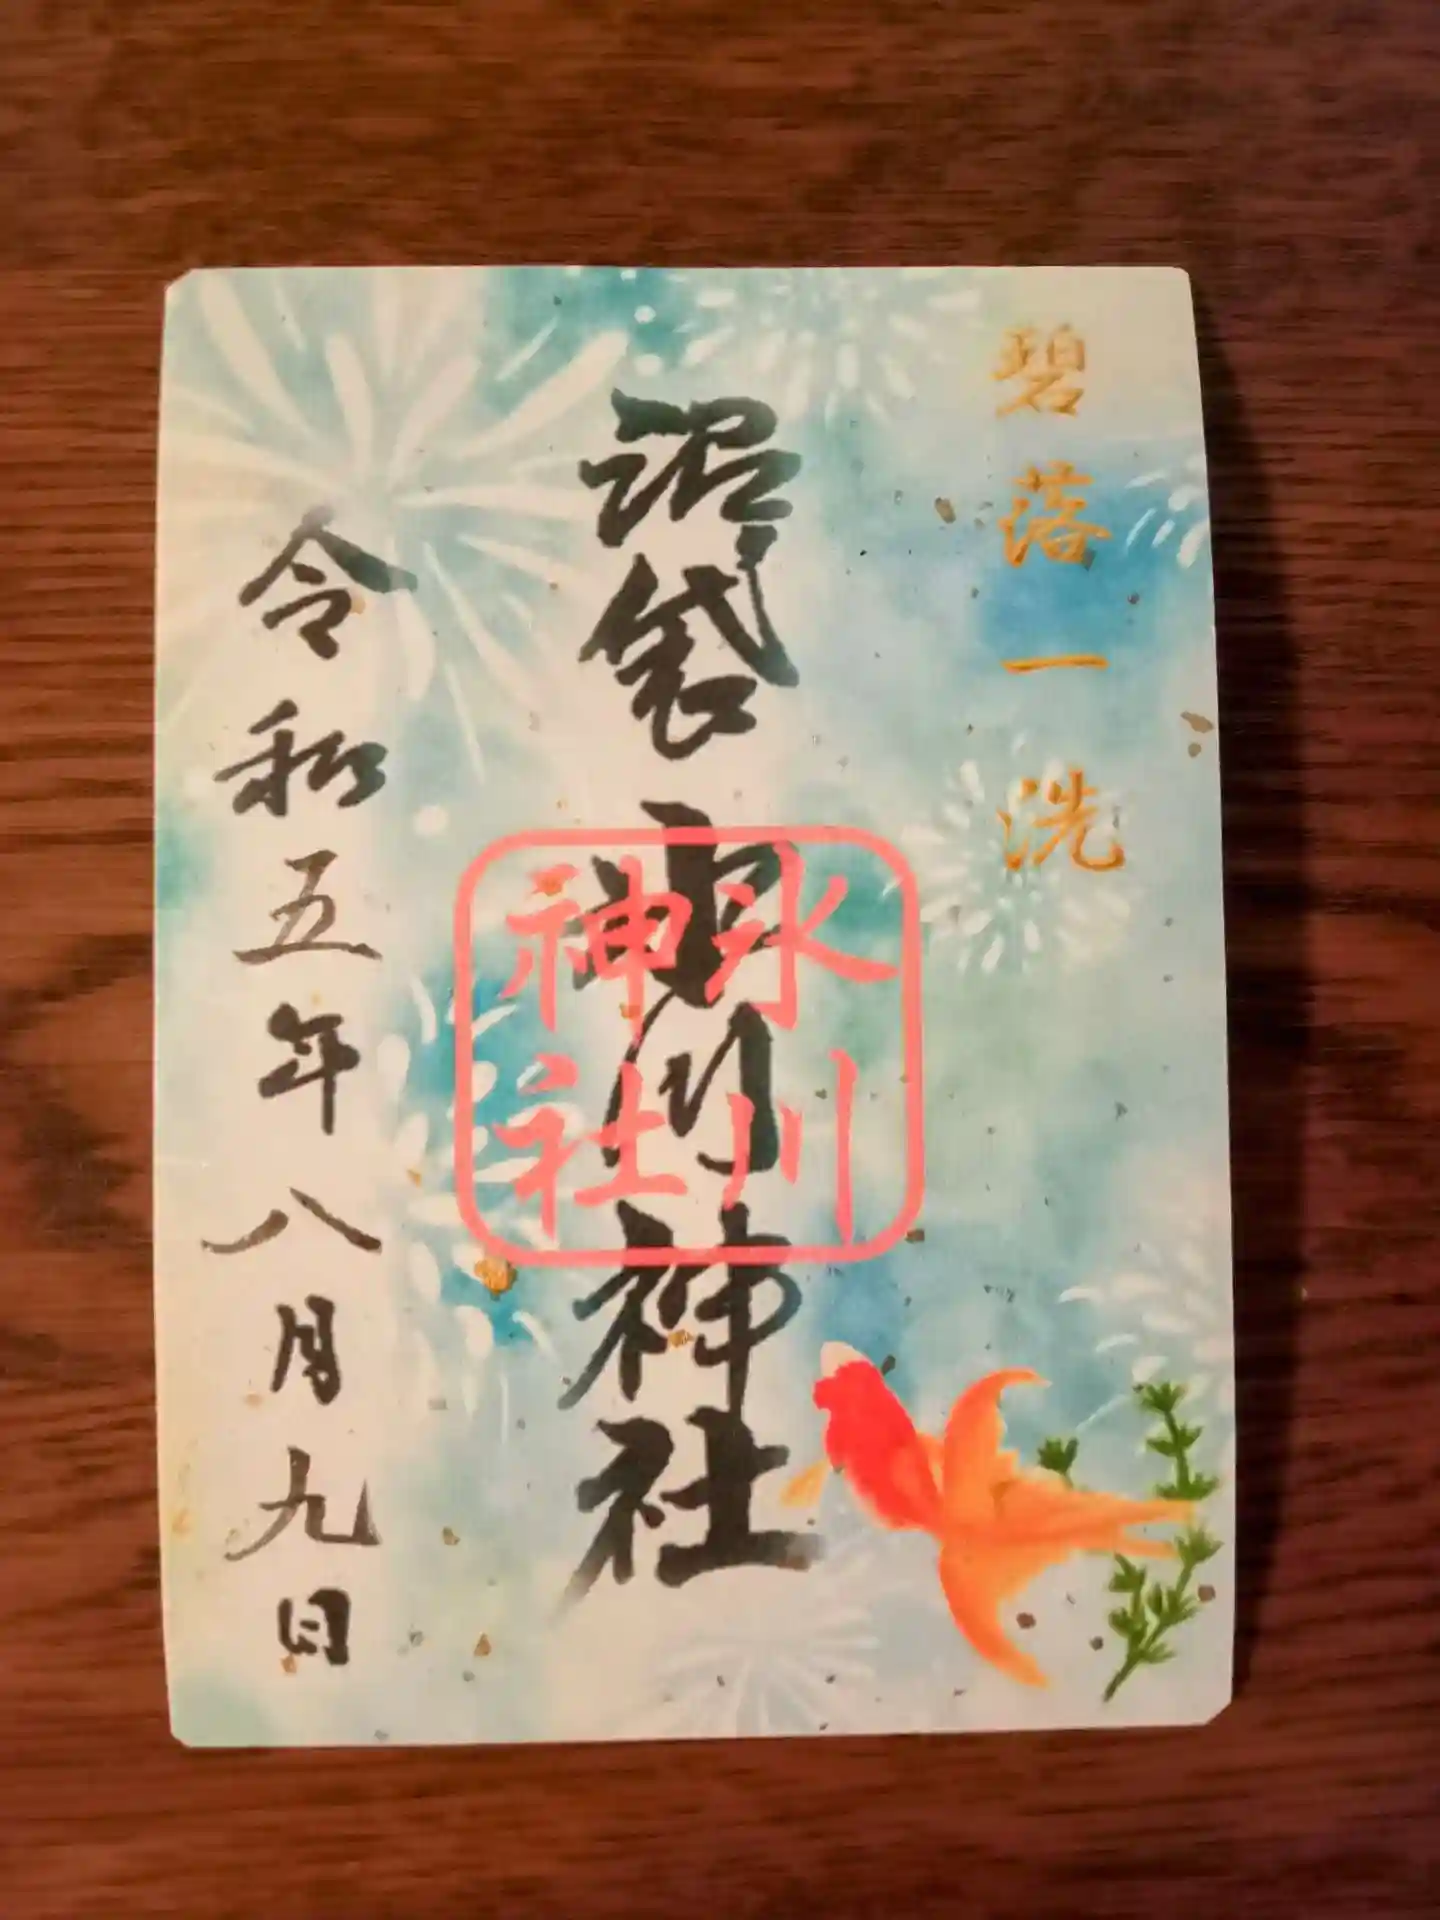 碧落一洗
沼袋氷川神社
氷川
神社
令和五年八月九日